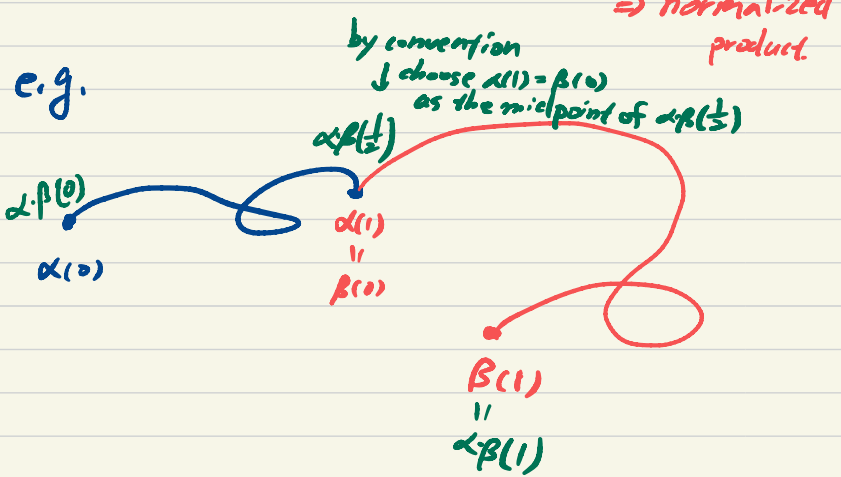 => normalized
product.
by convention
↓ choose α(1) = β(0)
as the midpoint of α·β(1/2)
e.g.
α·β(1/2)
α·β(0)
α(0)
α(1)
=
β(0)
β(1)
=
α·β(1)